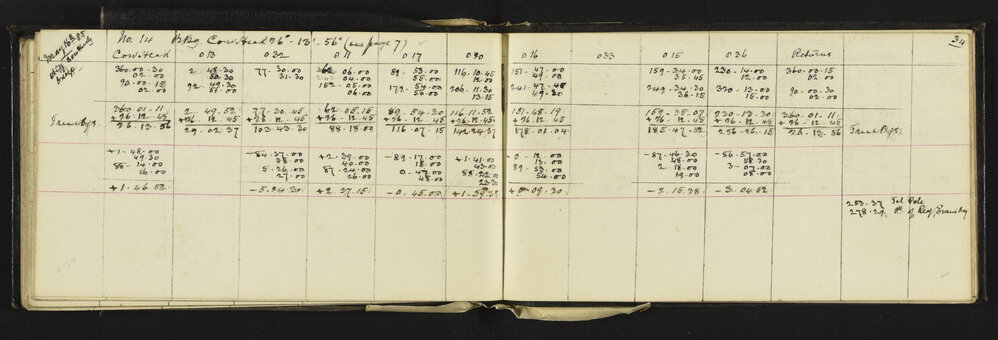 34
May 16th 05
No. 14 Brg Cow Head 26° - 13' - 56" (see page 7)
Cow Head 013 032 011 017 030 016 033 015 036 Returns
360.00.30 2.48.30 77.30.00 62.06.00 89.53.00 116.10.45 151.47.00 159.34.00 230.14.00 360.00.15
02.00 50.30 31.30 04.00 55.00 12.00 49.00 35.45 12.00 02.00
90.00.15 92.49.30 152.05.00 179.54.00 206.11.30 241.47.45 249.34.30 320.13.00 90.00.30
02.00 51.00 06.00 56.00 13.15 49.30 36.15 15.00 02.00
360.01.11 2.49.52 77.30.45 62.05.15 89.54.30 116.11.52 151.48.19 159.35.07 230.13.30 360.01.11
+26.12.45 +26.12.45 +26.12.45 +26.12.45 +26.12.45 +26.12.45 +26.12.45 +26.12.45 +26.12.45 +26.12.45
True Bgs. 26.13.56 29.02.37 103.43.30 88.18.00 116.07.15 142.24.37 178.01.04 185.47.52 256.26.15 26.13.56 True Bgs.
+1.48.00 -84.37.00 +2.39.00 -89.17.00 +1.41.00 +0.12.00 -87.46.30 -86.57.00
49.30 38.00 40.00 18.00 43.00 13.00 48.00 58.30
88.14.00 5.26.00 87.24.00 0.47.00 88.22.00 89.53.00 2.18.00 3.07.00
16.00 27.00 26.00 48.00 23.30 54.00 19.00 08.00
+1.46.52 -5.24.30 +2.37.15 -0.45.00 +1.39.23 +0.09.30 -2.15.38 -3.04.52
253.37 Tel Pole
278.29